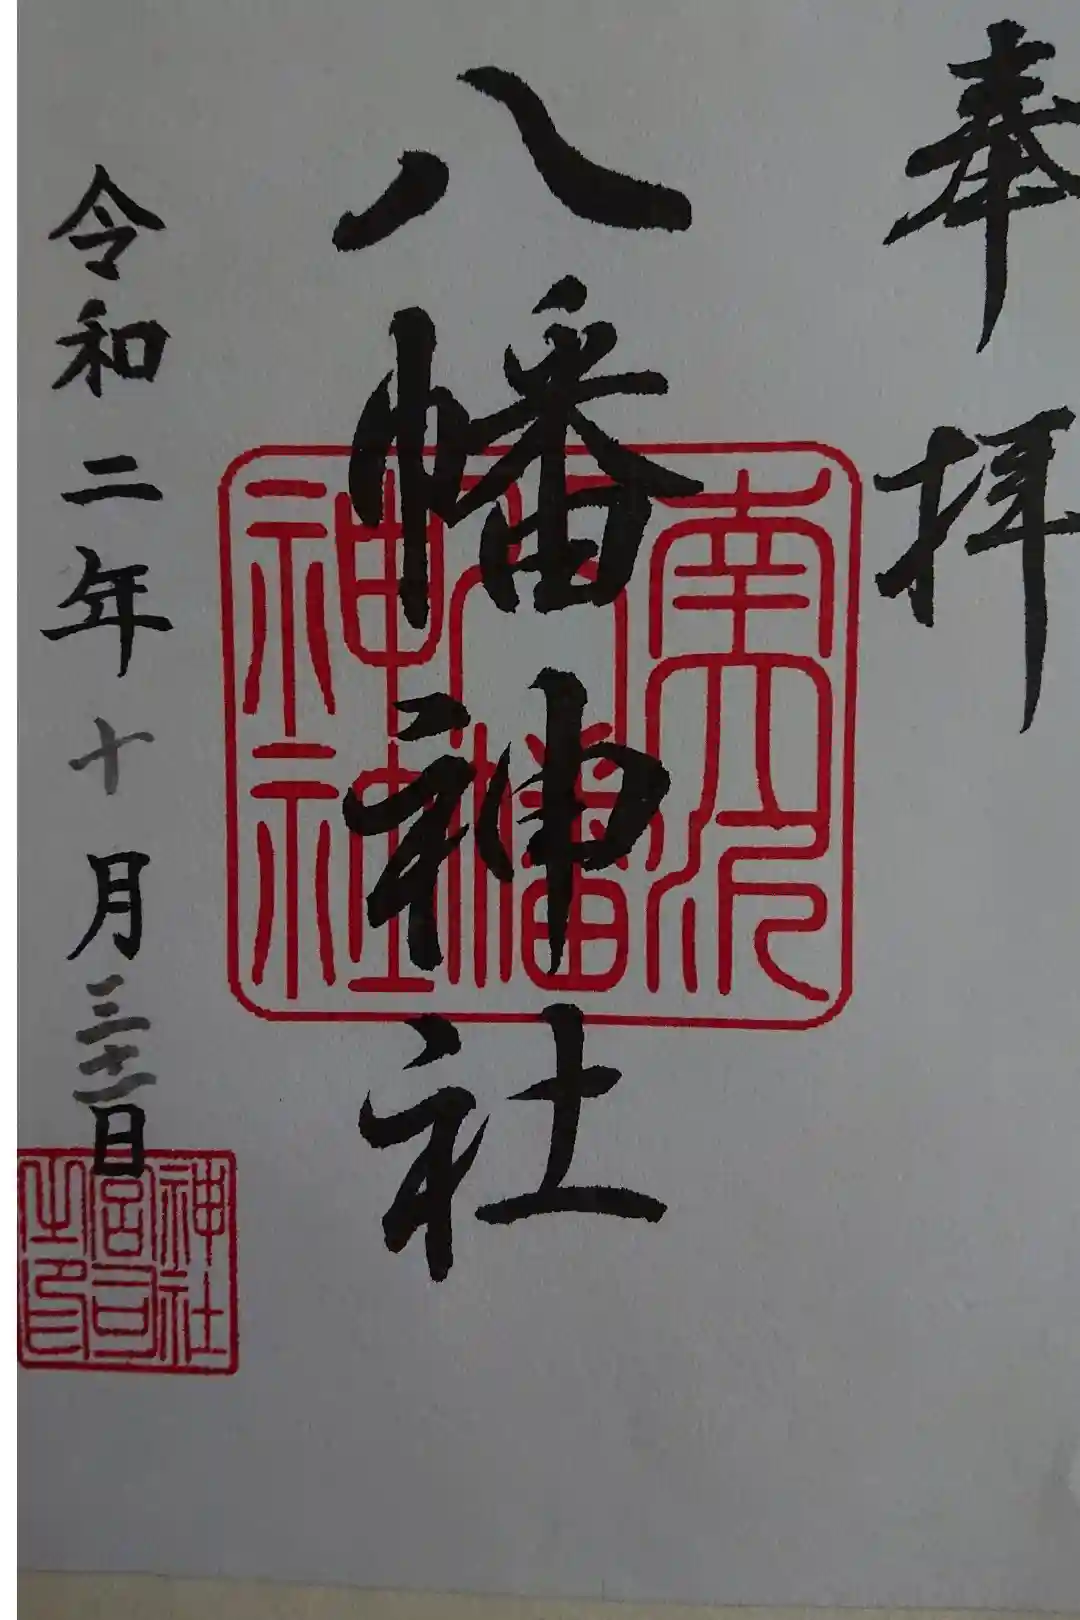 奉拝
八幡神社
南大沢
八幡
神社
令和二年十月三十一日
神社
宮司
之印